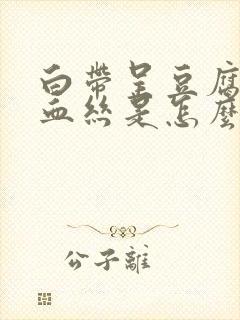 白帶呈豆腐
血絲是怎麼
公子離